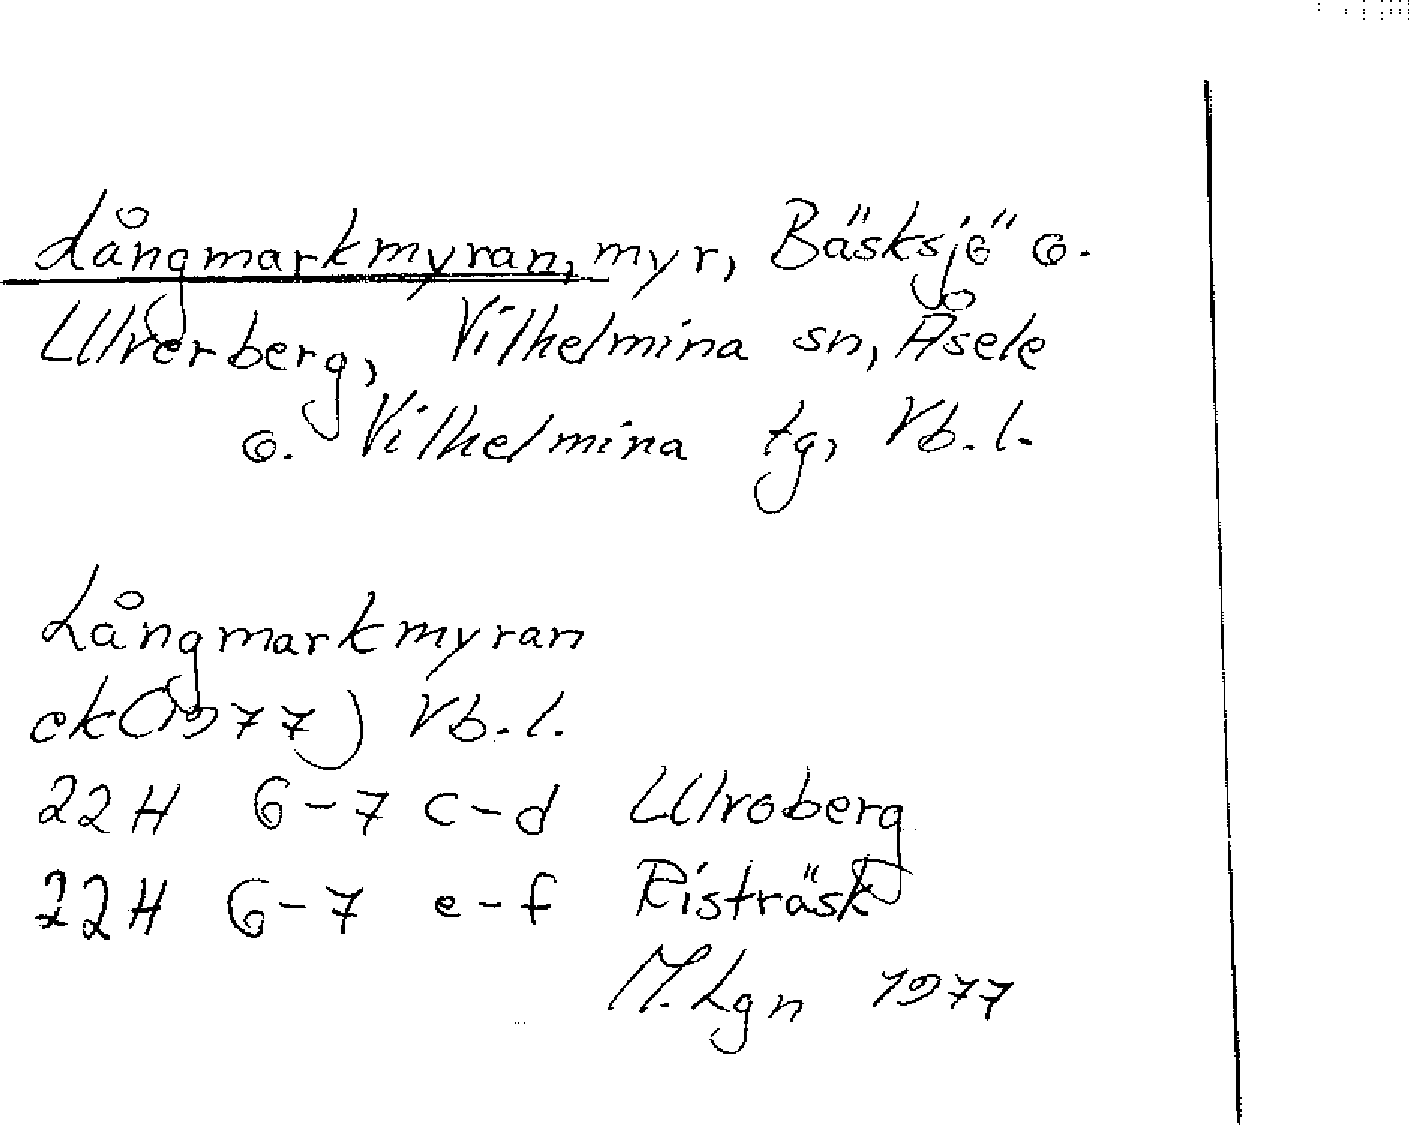 Långmarkmyran, myr, Bäsksjö o.
Ulverberg, Vilhelmina sn, Åsele
o. Vilhelmina tg, Vb. l.
Långmarkmyran
ek (1977) Vb. l.
22H 6-7 c-d Ulvoberg
22H 6-7 e-f Risträsk
M. Lgn 1977